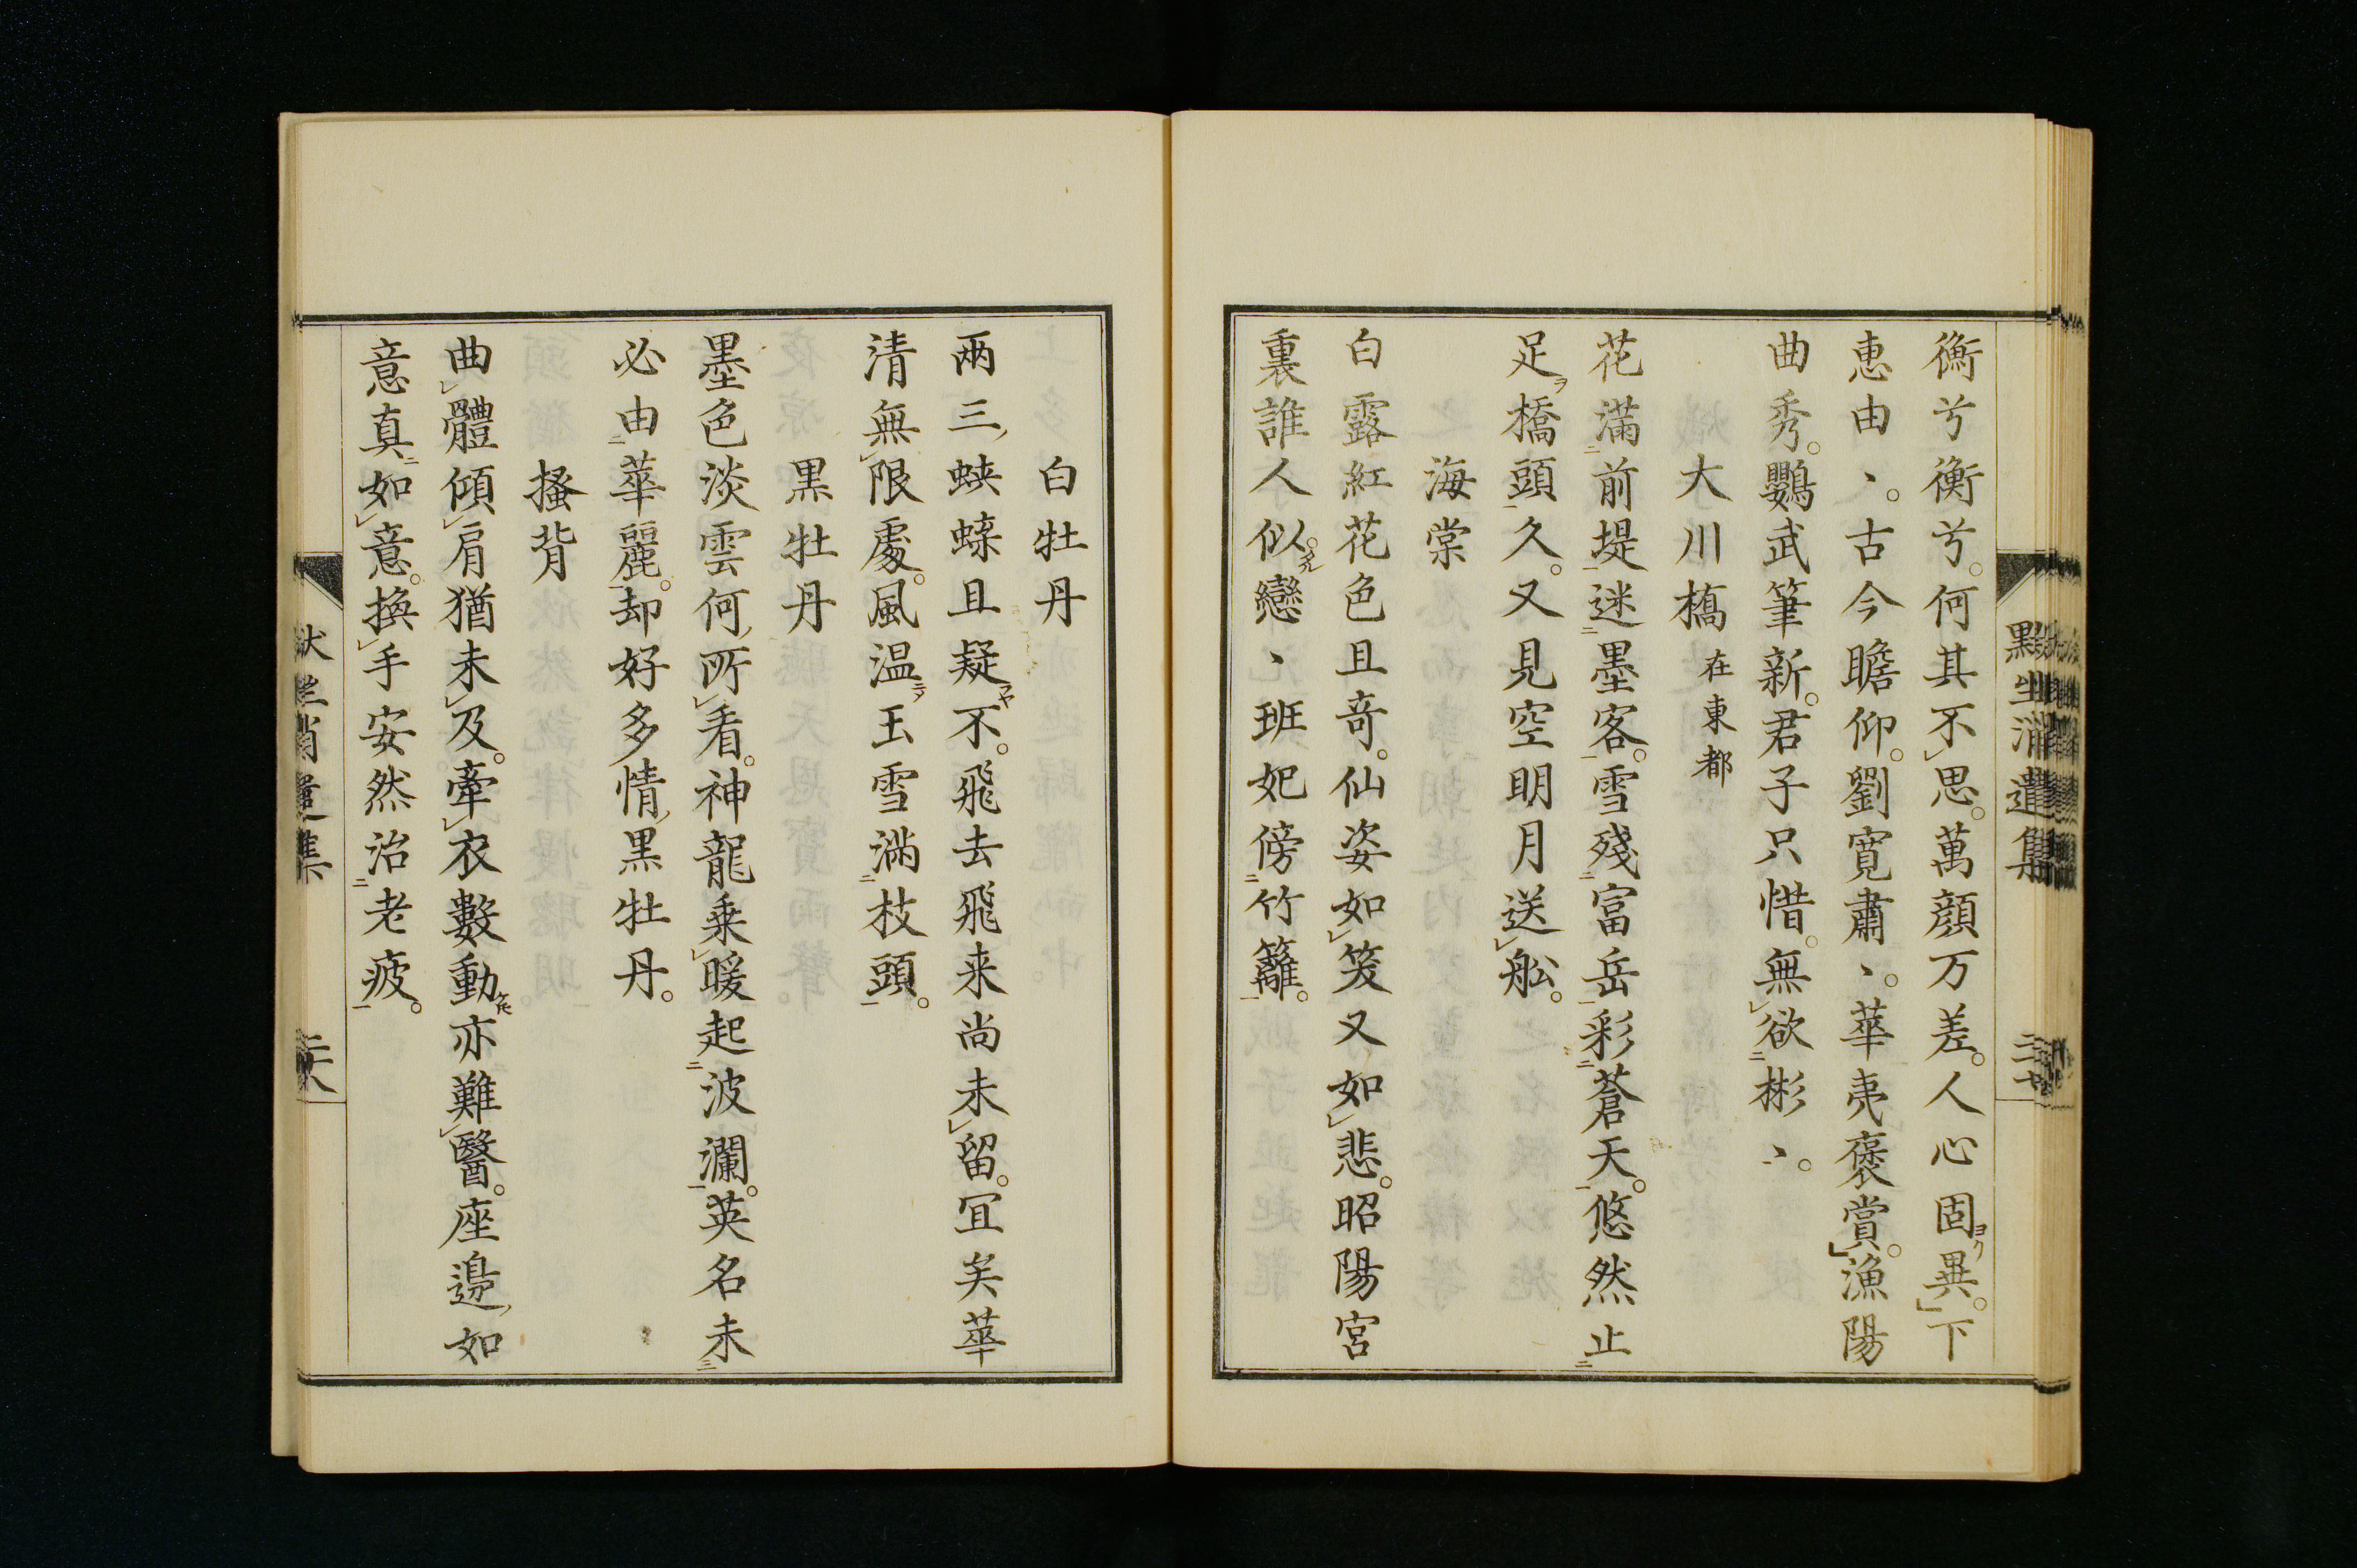 衡兮衡兮。何其不思。萬顏万差。人心固異。下
惠由、。古今瞻仰。劉寬肅、。華夷褒賞。漁陽
曲秀。鸚武筆新。君子只惜。無欲彬、。
大川橋 在東都
花滿前堤迷墨客。雪殘富岳彩蒼天。悠然止
足橋頭久。又見空明月送舩。
海棠
白露紅花色且奇。仙姿如笑又如悲。昭陽宮
裏誰人似。戀、班妃傍竹籬。
白牡丹
兩三蛺蝶且疑不。飛去飛来尚未留。宜矣華
清無限處。風温玉雪滿枝頭。
黒牡丹
墨色淡雲何所看。神龍乗暖起波瀾。英名未
必由華麗。却好多情黒牡丹。
搔背
曲體傾肩猶未及。牽衣數動亦難醫。座邊如
意真如意。換手安然治老疲。